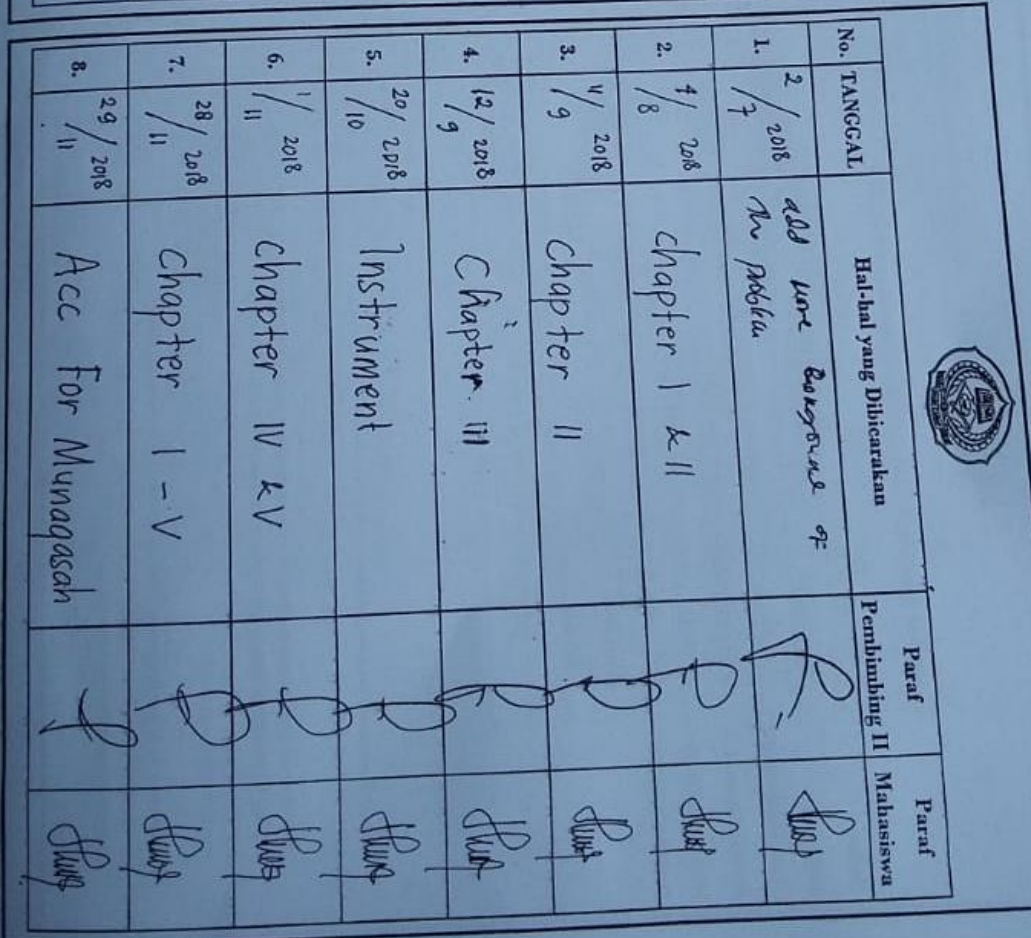 No. TANGGAL Hal-hal yang Dibicarakan Paraf Pembimbing II Paraf Mahasiswa
1. 2/7 2018 add more Background of
the problem
2. 4/8 2018 Chapter I & II
3. 4/9 2018 Chapter II
4. 12/9 2018 Chapter III
5. 20/10 2018 Instrument
6. 1/11 2018 Chapter IV & V
7. 28/11 2018 Chapter I - V
8. 29/11 2018 Acc For Munaqasah